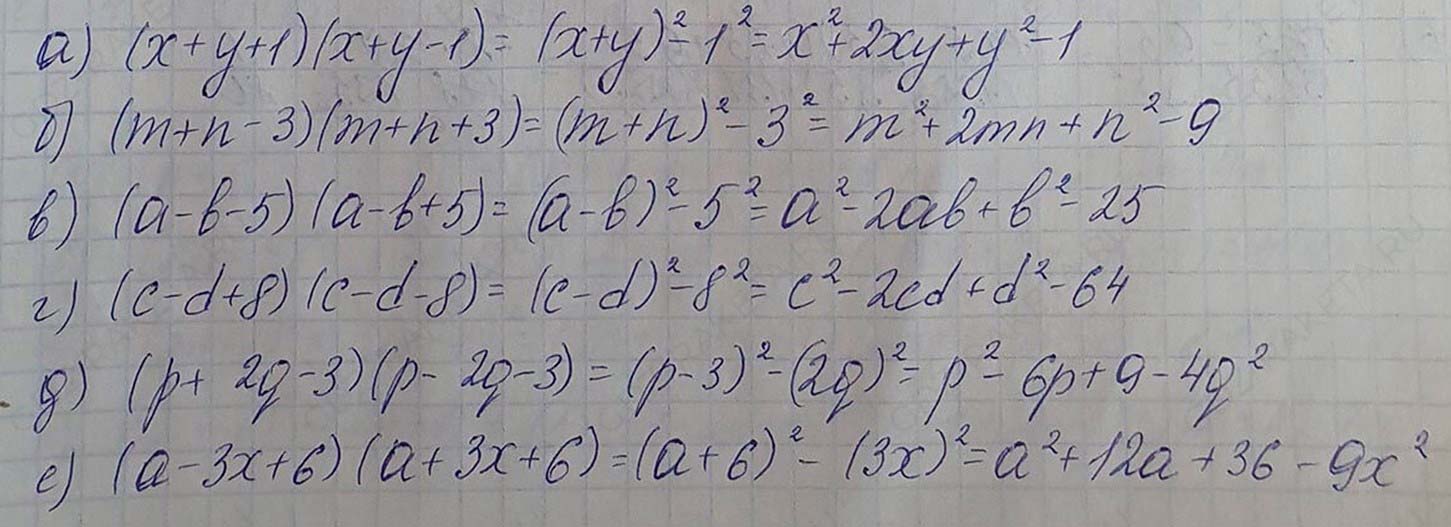 а) (x+y+1)(x+y-1)= (x+y)²-1²= x²+2xy+y²-1
б) (m+n-3)(m+n+3)=(m+n)²-3²= m²+2mn+n²-9
в) (a-b-5)(a-b+5)= (a-b)²-5²= a²-2ab+b²-25
г) (c-d+8)(c-d-8)= (c-d)²-8²= c²-2cd+d²-64
д) (p+2q-3)(p-2q-3)= (p-3)²-(2q)²= p²-6p+9-4q²
е) (a-3x+6)(a+3x+6)=(a+6)²-(3x)²=a²+12a+36-9x²